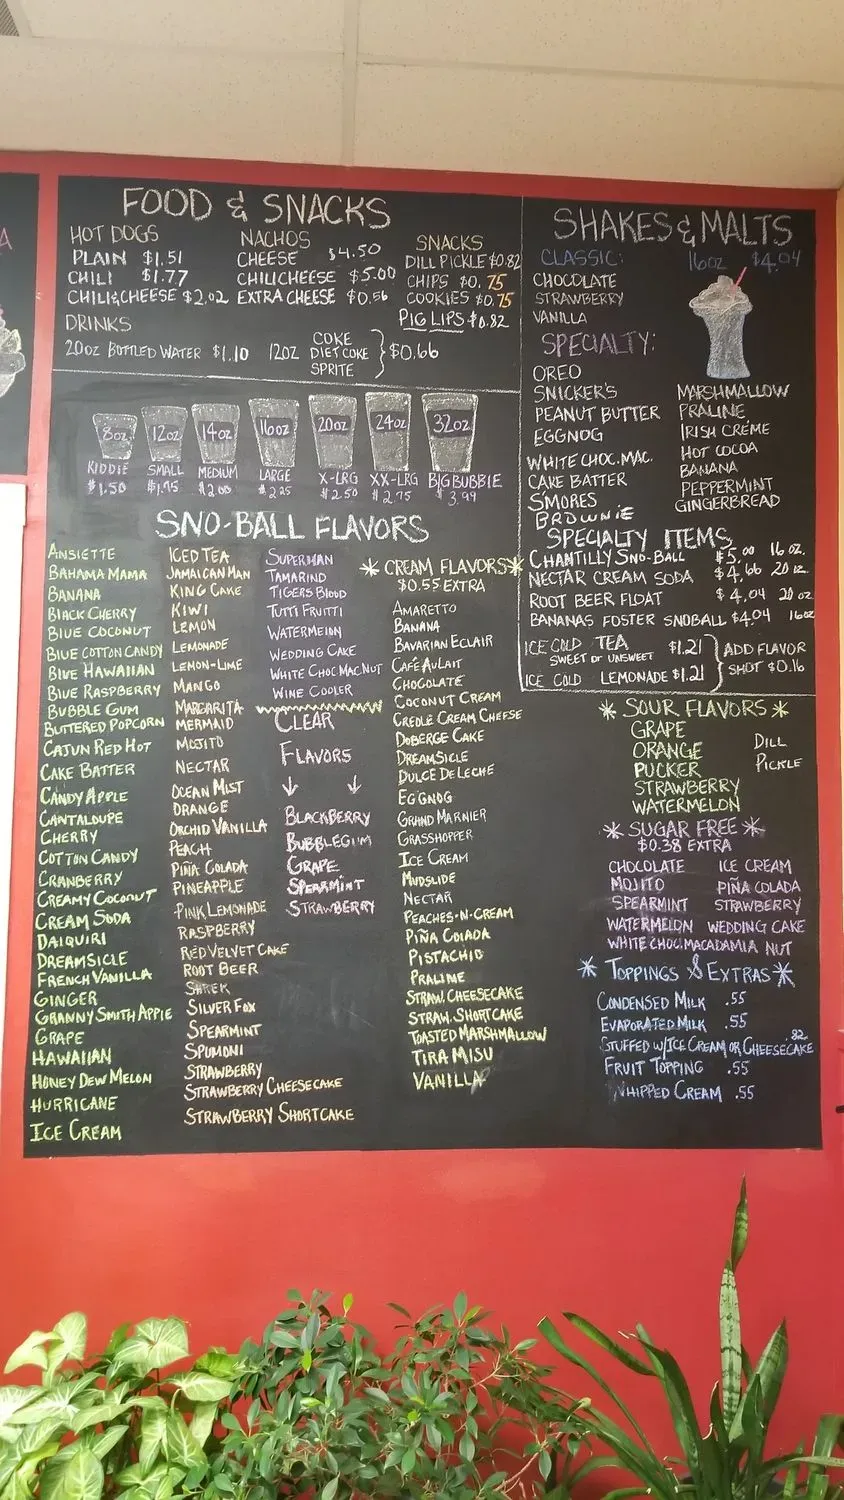 A
FOOD & SNACKS
HOT DOGS
PLAIN $1.51
CHILI $1.77
CHILI&CHEESE $2.02
NACHOS
CHEESE $4.50
CHILICHEESE $5.00
EXTRA CHEESE $0.56
SNACKS
DILL PICKLE $0.82
CHIPS $0.75
COOKIES $0.75
PIG LIPS $0.82
DRINKS
20oz BOTTLED WATER $1.10
12oz COKE
DIET COKE
SPRITE
$0.66
8oz 12oz 14oz 16oz 20oz 24oz 32oz
KIDDIE SMALL MEDIUM LARGE X-LRG XX-LRG BIG BUBBIE
$1.50 $1.75 $2.00 $2.25 $2.50 $2.75 $3.99
SNO-BALL FLAVORS
ANSIETTE
BAHAMA MAMA
BANANA
BLACK CHERRY
BLUE COCONUT
BLUE COTTON CANDY
BLUE HAWAIIAN
BLUE RASPBERRY
BUBBLE GUM
BUTTERED POPCORN
CAJUN RED HOT
CAKE BATTER
CANDY APPLE
CANTALOUPE
CHERRY
COTTON CANDY
CRANBERRY
CREAMY COCONUT
CREAM SODA
DAIQUIRI
DREAMSICLE
FRENCH VANILLA
GINGER
GRANNY SMITH APPLE
GRAPE
HAWAIIAN
HONEY DEW MELON
HURRICANE
ICE CREAM
ICED TEA
JAMAICAN MAN
KING CAKE
KIWI
LEMON
LEMONADE
LEMON-LIME
MANGO
MARGARITA
MERMAID
MOJITO
NECTAR
OCEAN MIST
ORANGE
ORCHID VANILLA
PEACH
PIÑA COLADA
PINEAPPLE
PINK LEMONADE
RASPBERRY
RED VELVET CAKE
ROOT BEER
SHREK
SILVER FOX
SPEARMINT
SPUMONI
STRAWBERRY
STRAWBERRY CHEESECAKE
STRAWBERRY SHORTCAKE
SUPERMAN
TAMARIND
TIGERS BLOOD
TUTTI FRUITTI
WATERMELON
WEDDING CAKE
WHITE CHOC. MAC. NUT
WINE COOLER
CLEAR
FLAVORS
BLACKBERRY
BUBBLEGUM
GRAPE
SPEARMINT
STRAWBERRY
* CREAM FLAVORS *
$0.55 EXTRA
AMARETTO
BANANA
BAVARIAN ECLAIR
CAFÉ AU LAIT
CHOCOLATE
COCONUT CREAM
CREOLE CREAM CHEESE
DOBERGE CAKE
DREAMSICLE
DULCE DE LECHE
EGGNOG
GRAND MARNIER
GRASSHOPPER
ICE CREAM
MUDSLIDE
NECTAR
PEACHES-N-CREAM
PIÑA COLADA
PISTACHIO
PRALINE
STRAW. CHEESECAKE
STRAW. SHORTCAKE
TOASTED MARSHMALLOW
TIRA MISU
VANILLA
SHAKES & MALTS
CLASSIC: 16oz $4.04
CHOCOLATE
STRAWBERRY
VANILLA
SPECIALTY:
OREO
SNICKER'S
PEANUT BUTTER
EGGNOG
WHITE CHOC. MAC.
CAKE BATTER
SMORES
BROWNIE
MARSHMALLOW
PRALINE
IRISH CRÉME
HOT COCOA
BANANA
PEPPERMINT
GINGERBREAD
SPECIALTY ITEMS
CHANTILLY SNO-BALL $5.00 16 oz.
NECTAR CREAM SODA $4.66 20 oz.
ROOT BEER FLOAT $4.04 20 oz
BANANAS FOSTER SNOBALL $4.04 16oz
ICE COLD TEA $1.21
SWEET OR UNSWEET
ICE COLD LEMONADE $1.21
ADD FLAVOR
SHOT $0.16
* SOUR FLAVORS *
GRAPE
ORANGE
PUCKER
STRAWBERRY
WATERMELON
DILL
PICKLE
* SUGAR FREE *
$0.38 EXTRA
CHOCOLATE ICE CREAM
MOJITO PIÑA COLADA
SPEARMINT STRAWBERRY
WATERMELON WEDDING CAKE
WHITE CHOC. MACADAMIA NUT
* TOPPINGS & EXTRAS *
CONDENSED MILK .55
EVAPORATED MILK .55
STUFFED W/ICE CREAM OR CHEESECAKE .82
FRUIT TOPPING .55
WHIPPED CREAM .55